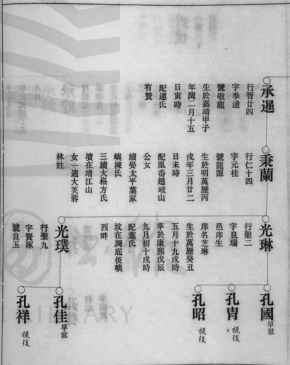 承暹
行智廿四
字季達
號敬龍
生於嘉靖甲子
年閏二月十五
日寅時
配連氏
有贊
秉蘭
行仁十四
字元桂
號龍源
生於明萬曆丙
戌年三月廿二
日未時
配鳳岙趙岐山
公女
續娶太平葉家
嶼陳氏
三續大嵩方氏
墳在靖江山
女一適大芙蓉
林姓
光琳
行聖二
字良瑞
邑庠生
庠名芝琳
生於萬曆癸丑
五月十九戌時
卒於康熙戊辰
九月初十戌時
配葉氏
坟在灣底後嶼
西畔
光璞
行聖九
字賢琢
號良玉
孔國 早世
孔胄 後後
孔昭 後後
孔佳 早世
孔祥 後後
ARY